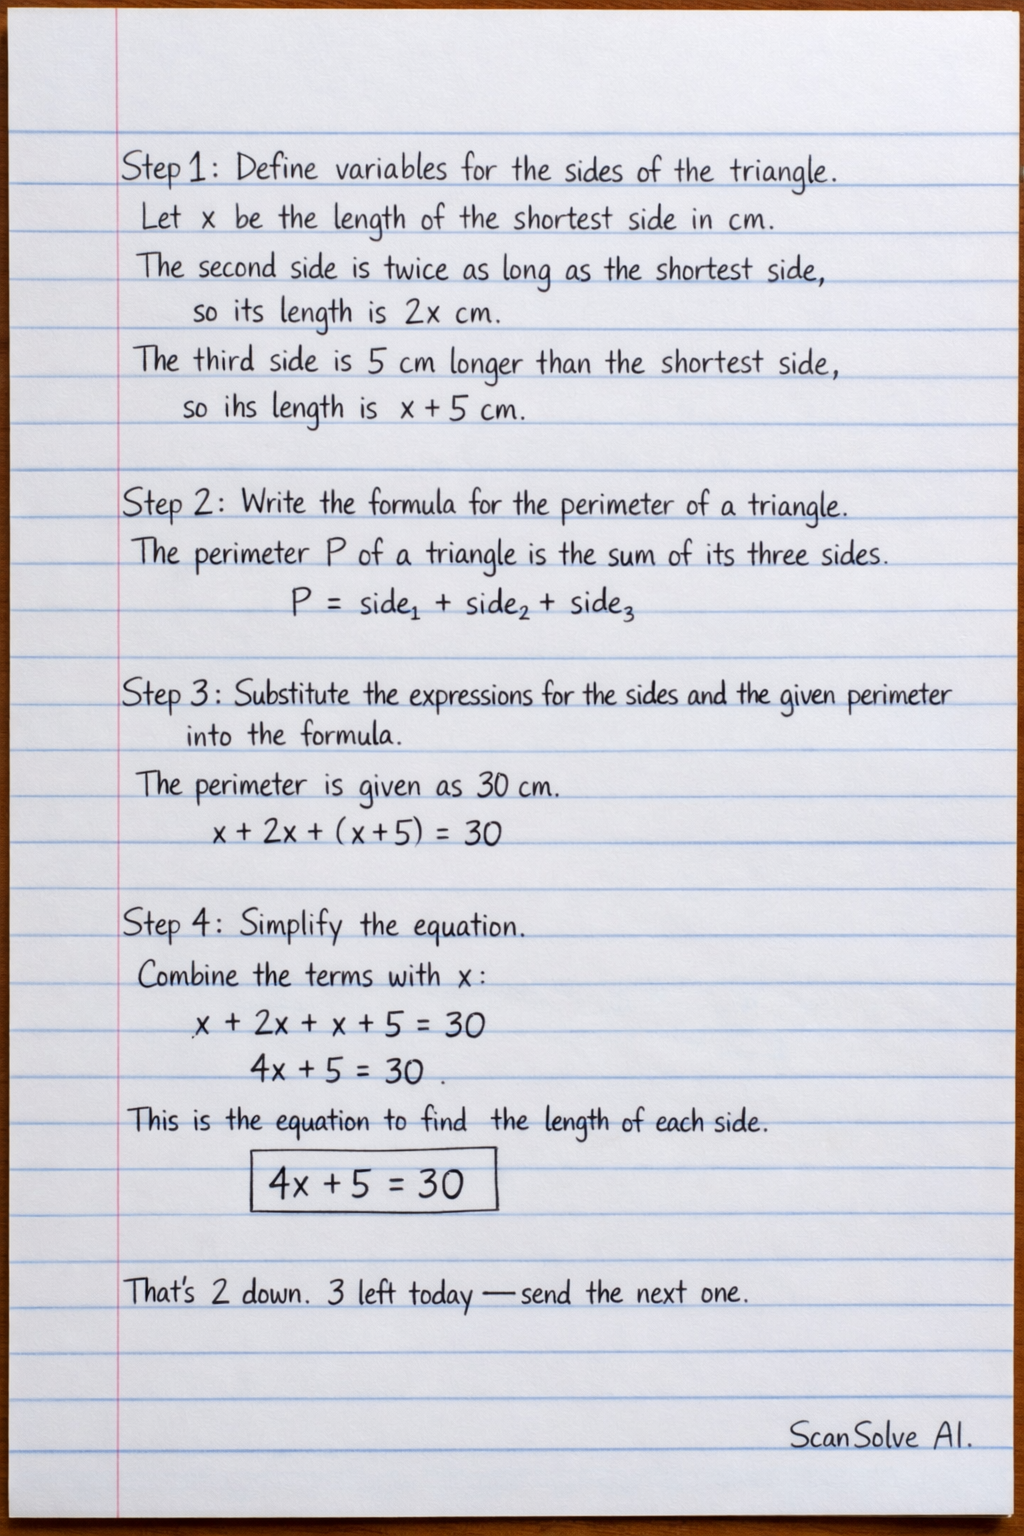 Step 1: Define variables for the sides of the triangle.
Let x be the length of the shortest side in cm.
The second side is twice as long as the shortest side,
so its length is 2x cm.
The third side is 5 cm longer than the shortest side,
so ihs length is x + 5 cm.
Step 2: Write the formula for the perimeter of a triangle.
The perimeter P of a triangle is the sum of its three sides.
P = side₁ + side₂ + side₃
Step 3: Substitute the expressions for the sides and the given perimeter
into the formula.
The perimeter is given as 30 cm.
x + 2x + (x+5) = 30
Step 4: Simplify the equation.
Combine the terms with x:
x + 2x + x + 5 = 30
4x + 5 = 30 .
This is the equation to find the length of each side.
4x + 5 = 30
That's 2 down. 3 left today — send the next one.
ScanSolve AI.